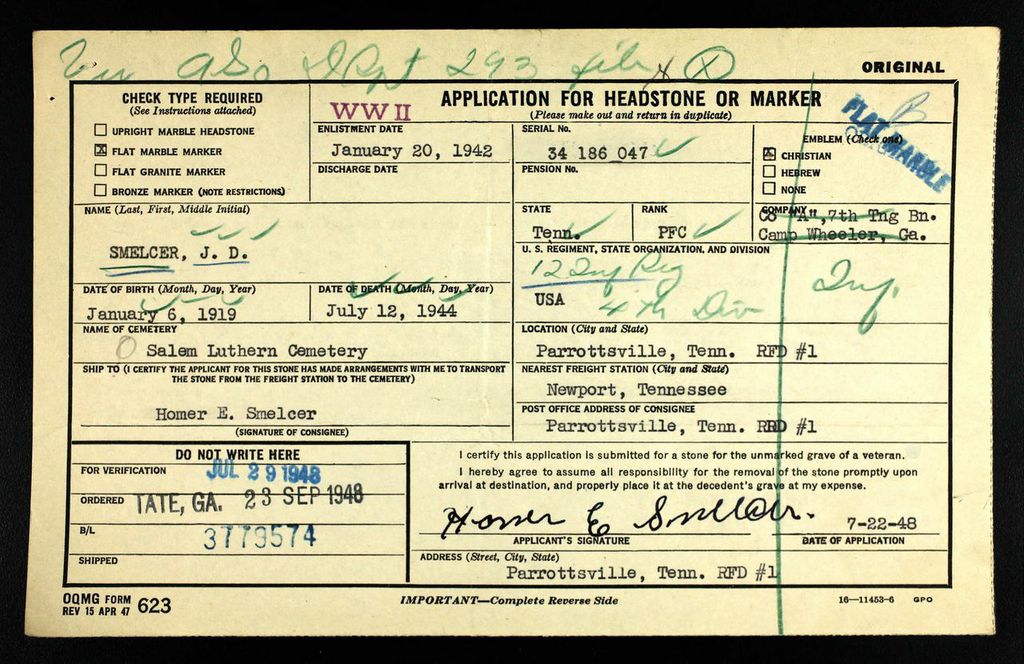 293 file
ORIGINAL
CHECK TYPE REQUIRED
(See Instructions attached)
UPRIGHT MARBLE HEADSTONE
FLAT MARBLE MARKER
FLAT GRANITE MARKER
BRONZE MARKER (NOTE RESTRICTIONS)
WW II
APPLICATION FOR HEADSTONE OR MARKER
(Please make out and return in duplicate)
ENLISTMENT DATE
January 20, 1942
DISCHARGE DATE
SERIAL No.
34 186 047
PENSION No.
EMBLEM (Check one)
CHRISTIAN
HEBREW
NONE
B
FLAT MARBLE
NAME (Last, First, Middle Initial)
SMELCER, J. D.
STATE
Tenn.
RANK
PFC
COMPANY
CO "A", 7th Tng Bn.
Camp Wheeler, Ga.
U. S. REGIMENT, STATE ORGANIZATION, AND DIVISION
12 Inf Reg
USA
4th Div
Inf.
DATE OF BIRTH (Month, Day, Year)
January 6, 1919
DATE OF DEATH (Month, Day, Year)
July 12, 1944
NAME OF CEMETERY
Salem Luthern Cemetery
LOCATION (City and State)
Parrottsville, Tenn. RFD #1
SHIP TO (I CERTIFY THE APPLICANT FOR THIS STONE HAS MADE ARRANGEMENTS WITH ME TO TRANSPORT
THE STONE FROM THE FREIGHT STATION TO THE CEMETERY)
Homer E. Smelcer
(SIGNATURE OF CONSIGNEE)
NEAREST FREIGHT STATION (City and State)
Newport, Tennessee
POST OFFICE ADDRESS OF CONSIGNEE
Parrottsville, Tenn. RRD #1
DO NOT WRITE HERE
FOR VERIFICATION
JUL 29 1948
ORDERED
TATE, GA. 23 SEP 1948
B/L
3779574
SHIPPED
I certify this application is submitted for a stone for the unmarked grave of a veteran.
I hereby agree to assume all responsibility for the removal of the stone promptly upon
arrival at destination, and properly place it at the decedent's grave at my expense.
Homer E Smelcer.
7-22-48
APPLICANT'S SIGNATURE
DATE OF APPLICATION
ADDRESS (Street, City, State)
Parrottsville, Tenn. RFD #1
OQMG FORM
REV 15 APR 47 623
IMPORTANT—Complete Reverse Side
16—11453-6 GPO